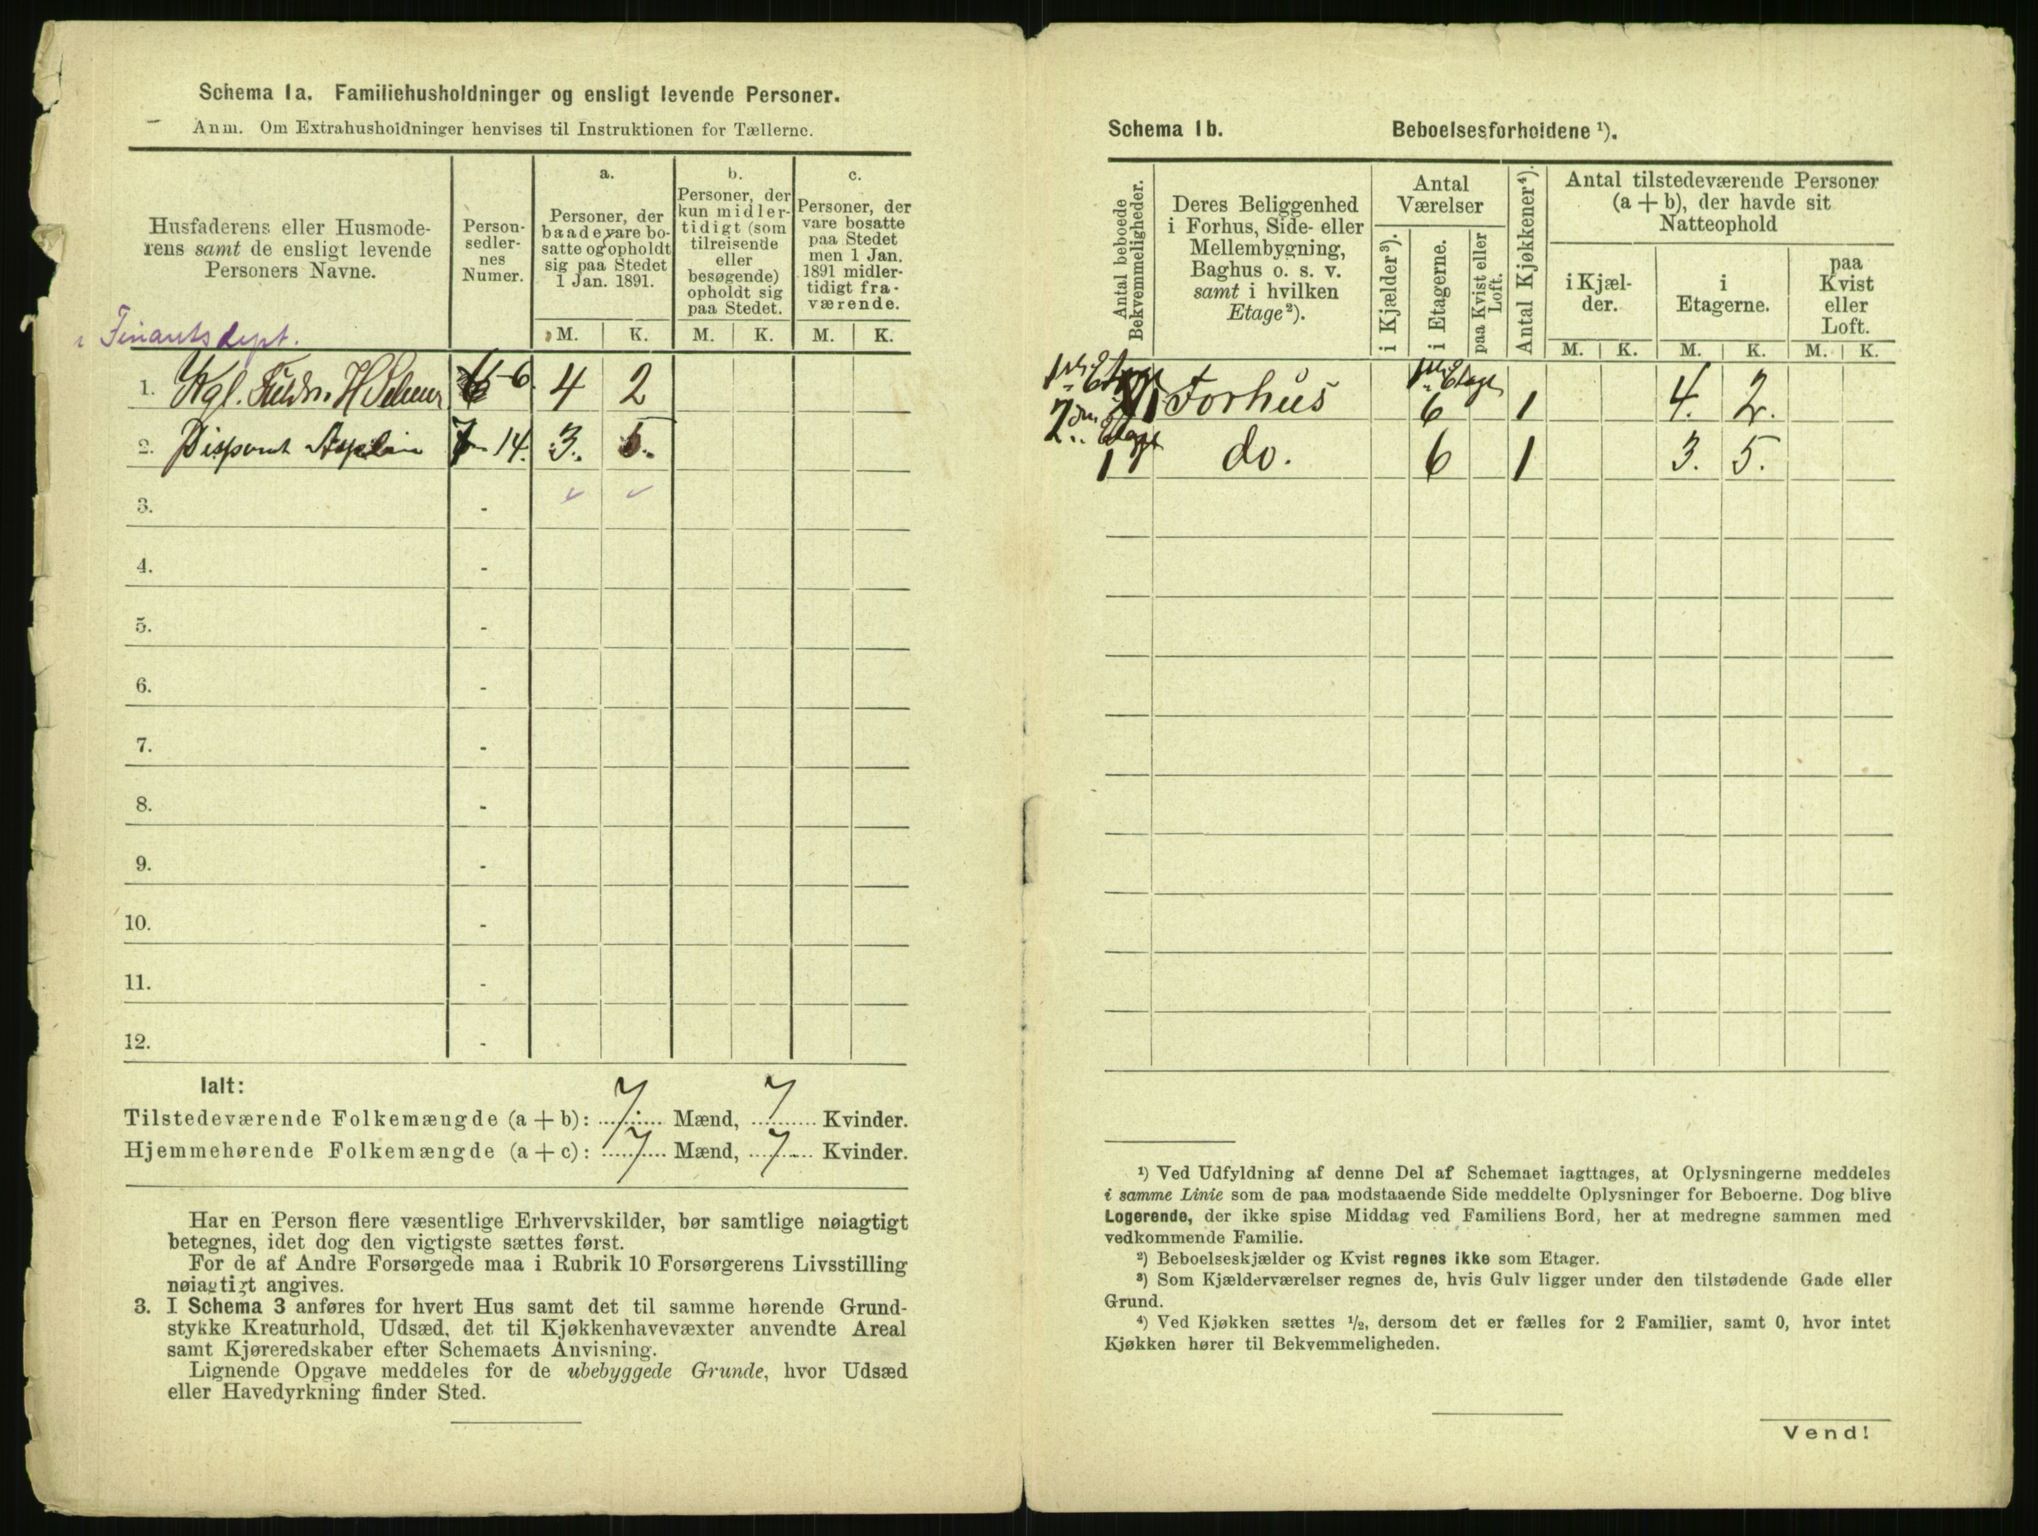 Schema 1a. Familiehusholdninger og ensligt levende Personer.
Anm. Om Extrahusholdninger henvises til Instruktionen for Tællerne.
Husfaderens eller Husmode-
rens samt de ensligt levende
Personers Navne.
Person-
sedler-
nes
Numer.
a.
Personer, der
baade vare bo-
satte og opholdt
sig paa Stedet
1 Jan. 1891.
b.
Personer, der
kun midler-
tidigt (som
tilreisende
eller
besøgende)
opholdt sig
paa Stedet.
c.
Personer, der
vare bosatte
paa Stedet
men 1 Jan.
1891 midler-
tidigt fra-
værende.
M. K. M. K. M. K.
i Finantsdept.
1. Kgl. H Selmer - 6 4 2
2. Disponent 7 - 14. 3. 5.
3. -
4. -
5. -
6. -
7. -
8. -
9. -
10. -
11. -
12. -
Ialt:
Tilstedeværende Folkemængde (a + b): 7. Mænd, 7 Kvinder.
Hjemmehørende Folkemængde (a + c): 7 Mænd, 7 Kvinder.
Har en Person flere væsentlige Erhvervskilder, bør samtlige nøiagtigt
betegnes, idet dog den vigtigste sættes først.
For de af Andre Forsørgede maa i Rubrik 10 Forsørgerens Livsstilling
nøiagtigt angives.
3. I Schema 3 anføres for hvert Hus samt det til samme hørende Grund-
stykke Kreaturhold, Udsæd, det til Kjøkkenhavevæxter anvendte Areal
samt Kjøreredskaber efter Schemaets Anvisning.
Lignende Opgave meddeles for de ubebyggede Grunde, hvor Udsæd
eller Havedyrkning finder Sted.
Schema 1b. Beboelsesforholdene ¹).
Antal beboede
Bekvemmeligheder.
Deres Beliggenhed
i Forhus, Side- eller
Mellembygning,
Baghus o. s. v.
samt i hvilken
Etage²).
Antal
Værelser
i Kjælder³).
i Etagerne.
paa Kvist eller
Loft.
Antal Kjøkkener⁴).
Antal tilstedeværende Personer
(a + b), der havde sit
Natteophold
i Kjæl-
der.
i
Etagerne.
paa
Kvist
eller
Loft.
M. K. M. K. M. K.
1ste Etage 1 Forhus 1ste Etage 6 1 4. 2.
2den Etage 1 do. 6 1 3. 5.
¹) Ved Udfyldning af denne Del af Schemaet iagttages, at Oplysningerne meddeles
i samme Linie som de paa modstaaende Side meddelte Oplysninger for Beboerne. Dog blive
Logerende, der ikke spise Middag ved Familiens Bord, her at medregne sammen med
vedkommende Familie.
²) Beboelseskjælder og Kvist regnes ikke som Etager.
³) Som Kjælderværelser regnes de, hvis Gulv ligger under den tilstødende Gade eller
Grund.
⁴) Ved Kjøkken sættes ½, dersom det er fælles for 2 Familier, samt 0, hvor intet
Kjøkken hører til Bekvemmeligheden.
Vend!